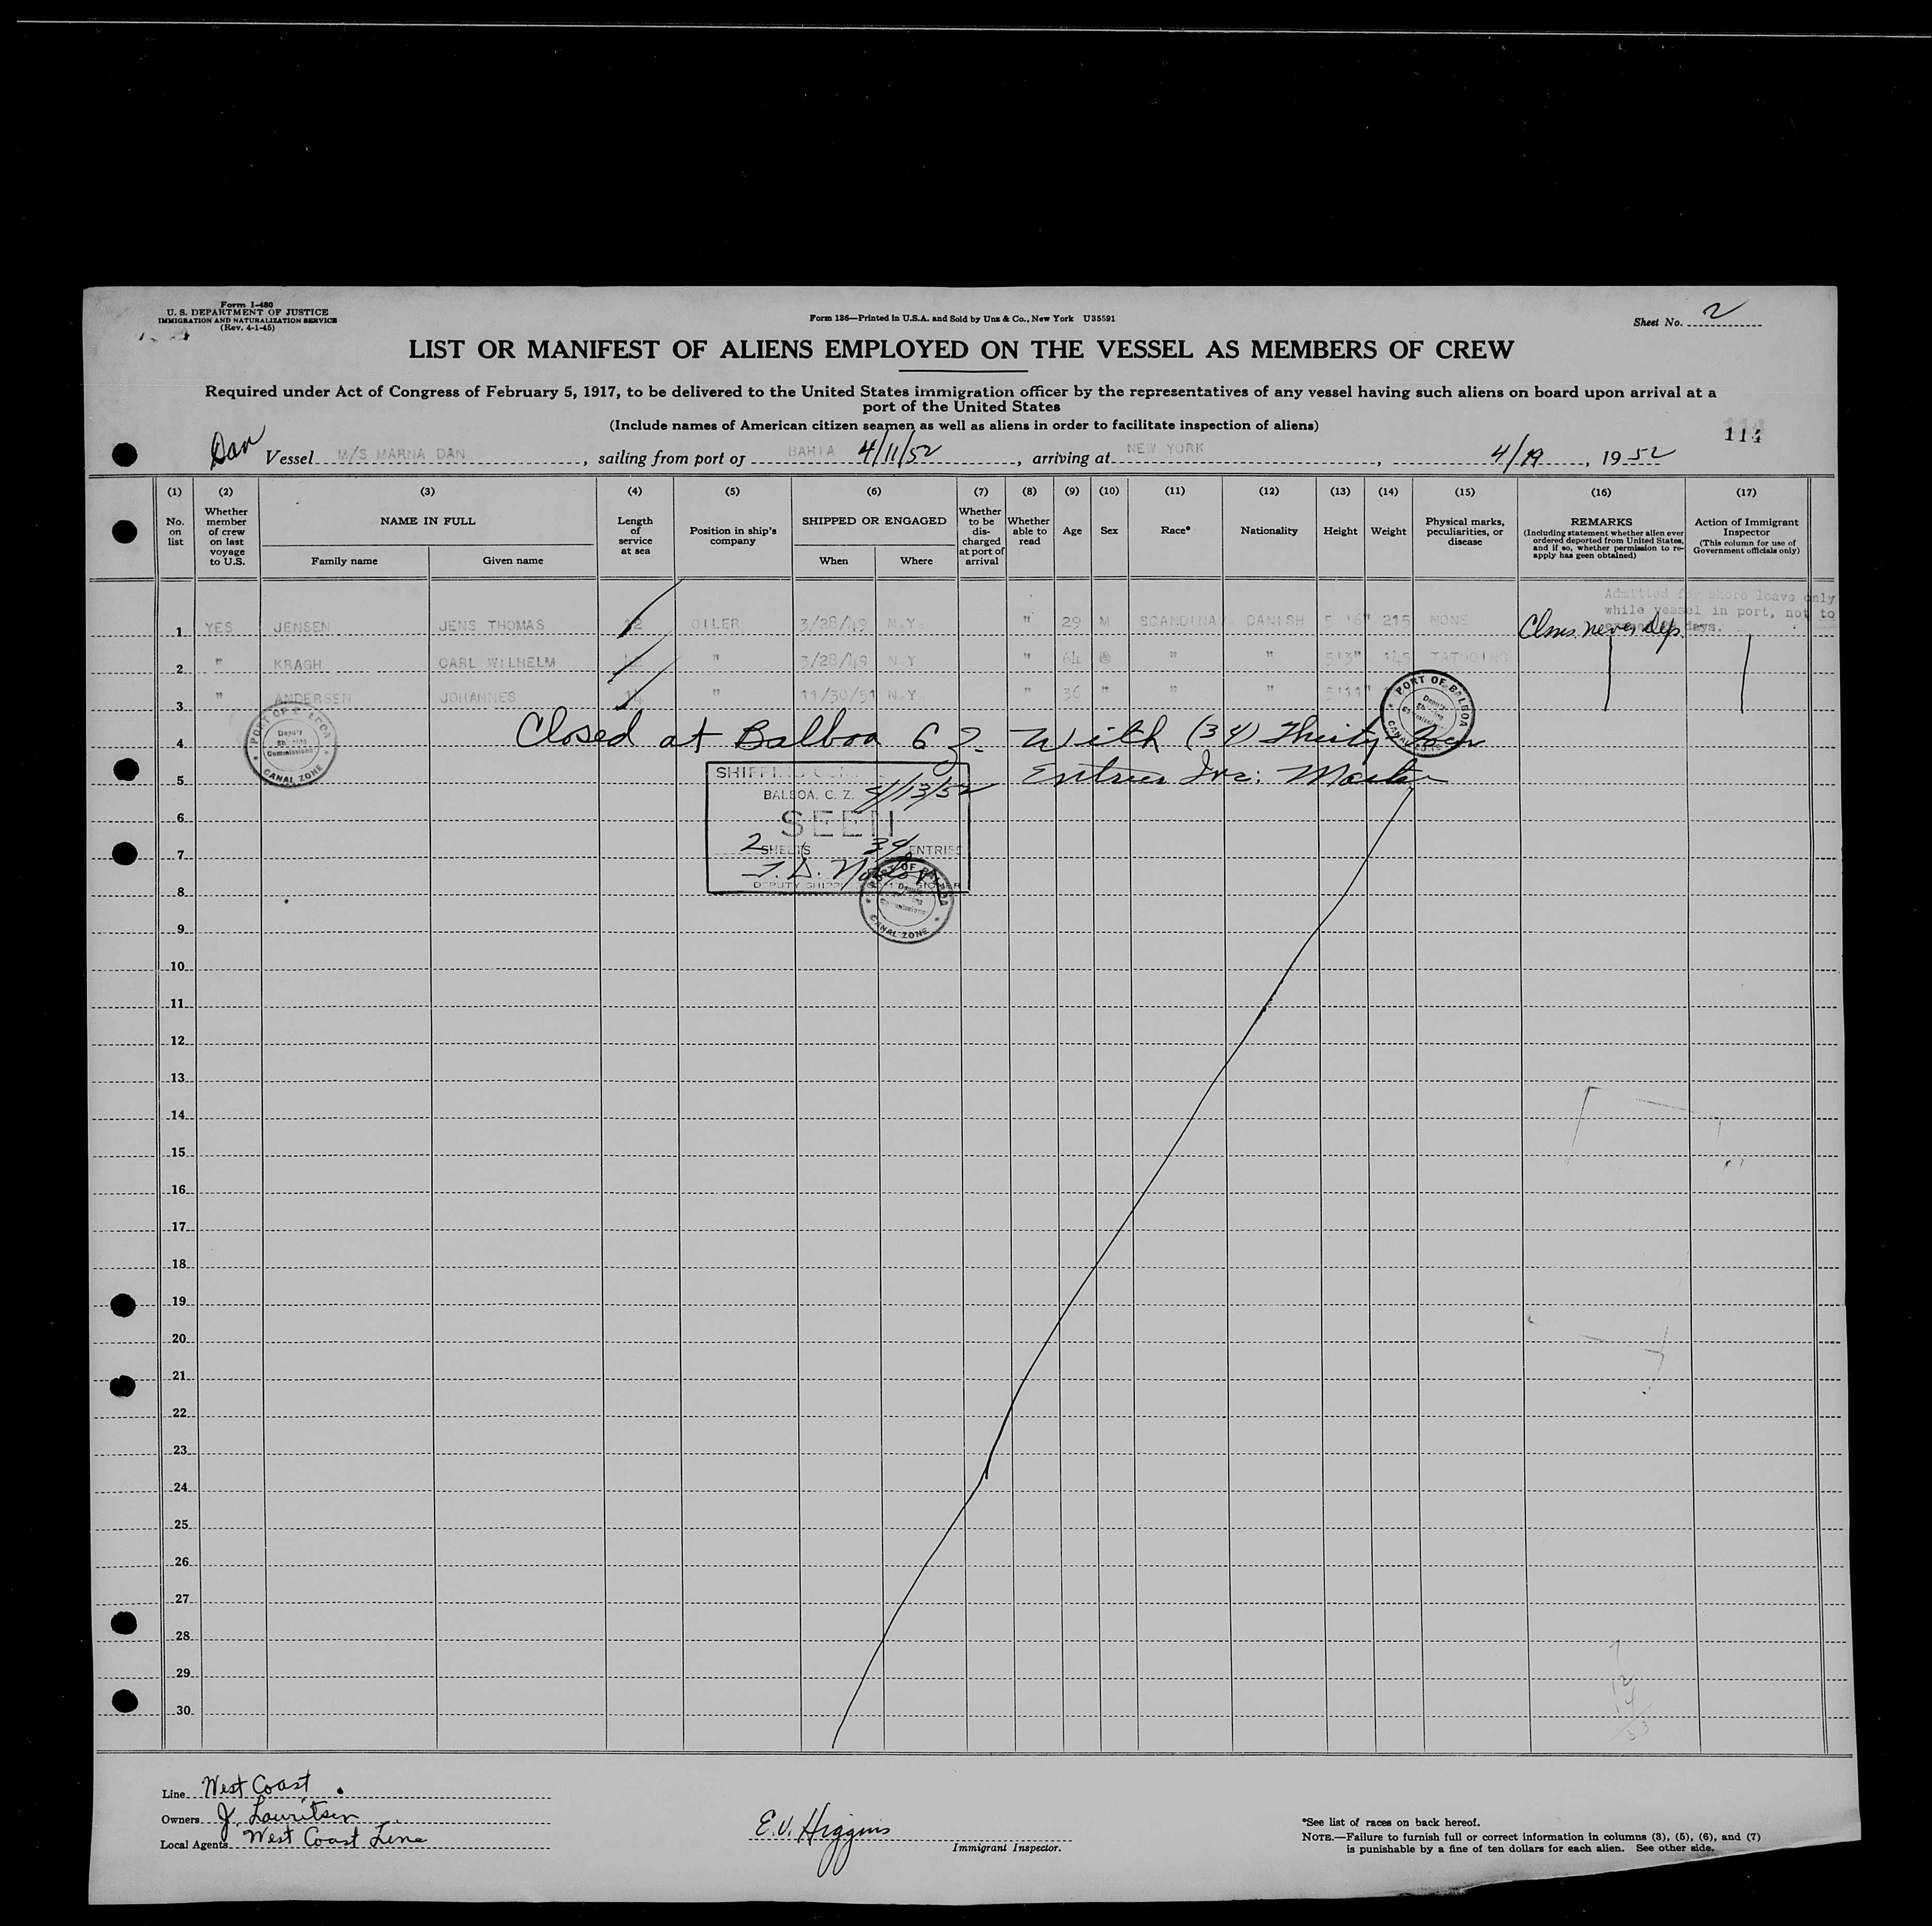 Form I-480
U. S. DEPARTMENT OF JUSTICE
IMMIGRATION AND NATURALIZATION SERVICE
(Rev. 4-1-45)
Form 136—Printed in U.S.A. and Sold by Unz & Co., New York U35591
Sheet No. 2
LIST OR MANIFEST OF ALIENS EMPLOYED ON THE VESSEL AS MEMBERS OF CREW
Required under Act of Congress of February 5, 1917, to be delivered to the United States immigration officer by the representatives of any vessel having such aliens on board upon arrival at a
port of the United States
(Include names of American citizen seamen as well as aliens in order to facilitate inspection of aliens)
114
Dan Vessel M/S MARNA DAN, sailing from port of BAHIA 4/11/52, arriving at NEW YORK, 4/19, 1952
(1) (2) (3) (4) (5) (6) (7) (8) (9) (10) (11) (12) (13) (14) (15) (16) (17)
No. on list
Whether member of crew on last voyage to U.S.
NAME IN FULL
Family name
Given name
Length of service at sea
Position in ship's company
SHIPPED OR ENGAGED
When
Where
Whether to be discharged at port of arrival
Whether able to read
Age
Sex
Race*
Nationality
Height
Weight
Physical marks, peculiarities, or disease
REMARKS
(Including statement whether alien ever ordered deported from United States, and if so, whether permission to re-apply has geen obtained)
Action of Immigrant Inspector
(This column for use of Government officials only)
Admitted for shore leave only
while vessel in port, not to
days.
1 YES JENSEN JENS THOMAS 12 OILER 3/28/49 N.Y. " 29 M SCANDINAV DANISH 5 '6" 215 NONE Clms never Dep.
2 " KRAGH CARL WILHELM " 3/28/49 N.Y " 64 " " 5'3" 145 TATOOING
3 " ANDERSEN JOHANNES 14 " 11/30/51 N.Y " 36 " " " 5'11"
PORT OF BALBOA
Deputy Shipping Commissioner
CANAL ZONE
PORT OF BALBOA
Deputy Shipping Commissioner
CANAL ZONE
4 Closed at Balboa C Z. With (34) Thirty-Four
5 Entries Inc: Master
SHIPPING COM
BALBOA, C. Z. 4/13/52
SEEN
2 SHEETS 34 ENTRIES
DEPUTY SHIPPING COMMISSIONER
PORT OF BALBOA
Deputy Shipping Commissioner
CANAL ZONE
6
7
8
9
10
11
12
13
14
15
16
17
18
19
20
21
22
23
24
25
26
27
28
29
30
12
4
33
Line West Coast
Owners J. Lauritsen
Local Agents West Coast Line
E.V. Higgins
Immigrant Inspector.
*See list of races on back hereof.
NOTE.—Failure to furnish full or correct information in columns (3), (5), (6), and (7)
is punishable by a fine of ten dollars for each alien. See other side.